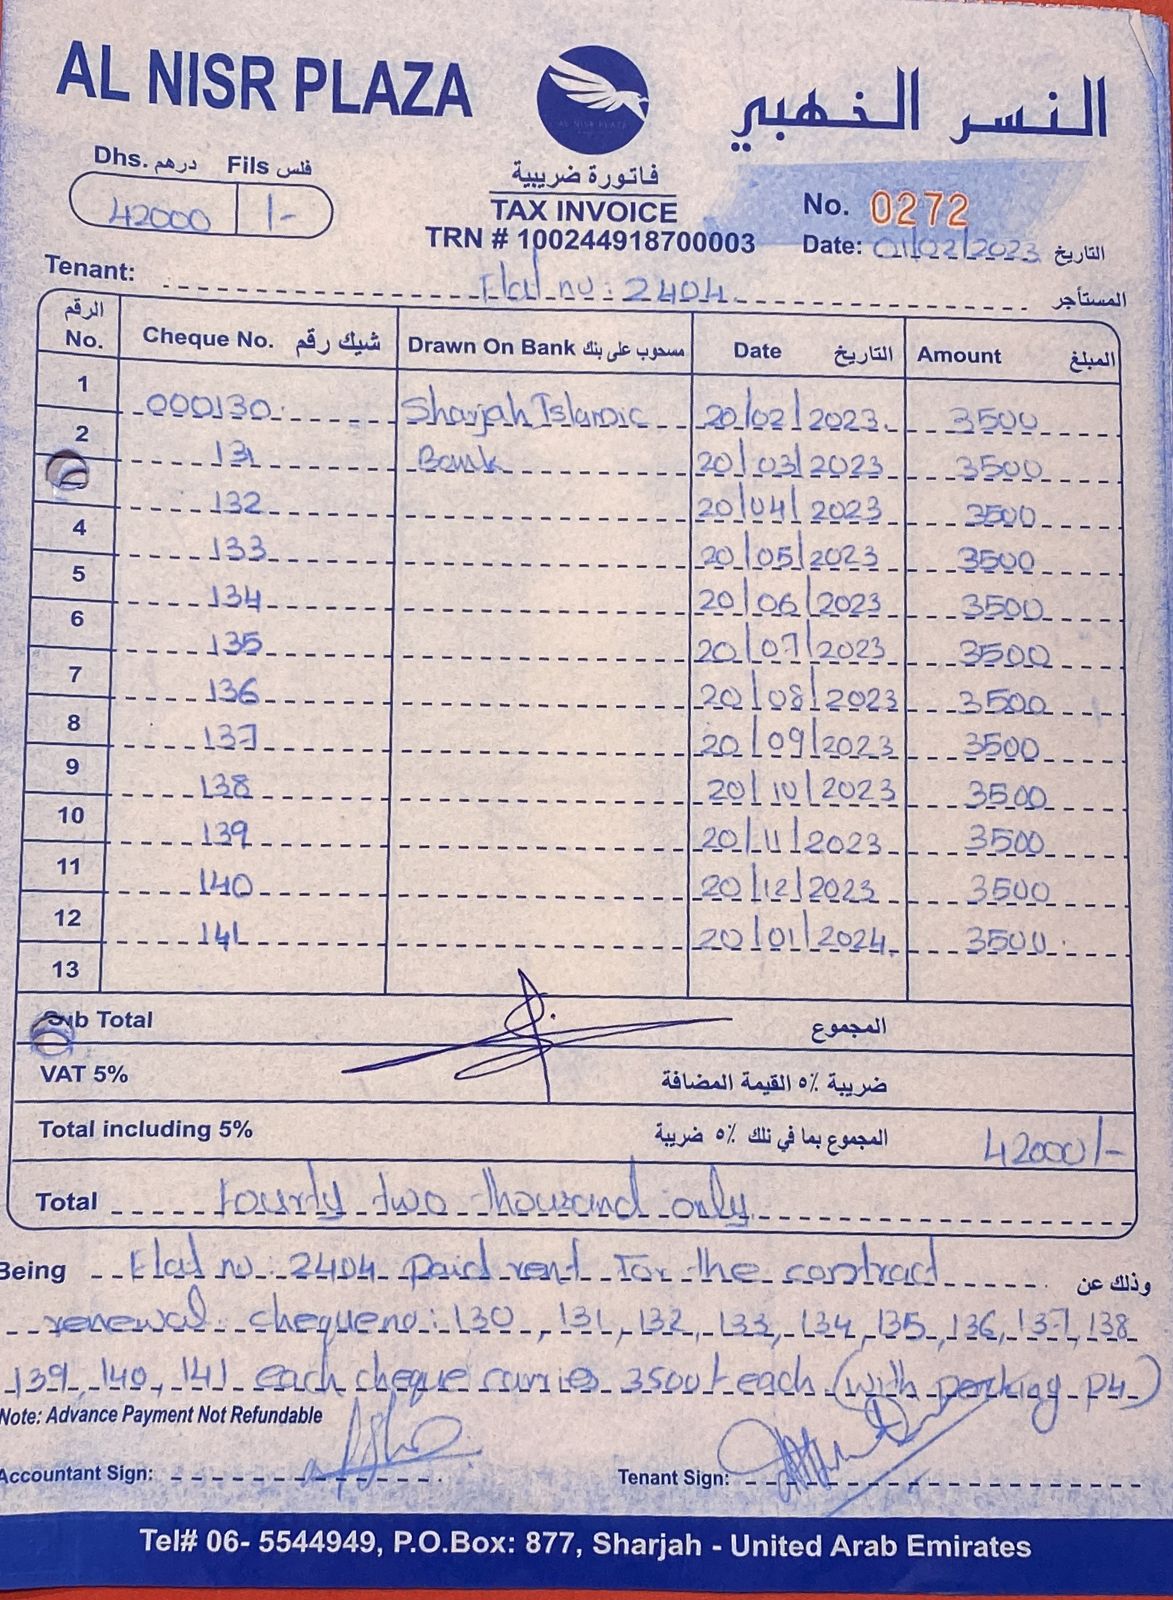 AL NISR PLAZA
النسر الخهبي
AL NISR PLAZA
Dhs. درهم Fils فلس
42000 /-
فاتورة ضريبية
TAX INVOICE
TRN # 100244918700003
No. 0272
Date: 01/02/2023 التاريخ
Tenant: Flat no: 2404 المستأجر
الرقم No. Cheque No. شيك رقم Drawn On Bank مسحوب على بنك Date التاريخ Amount المبلغ
1 000130 Sharjah Islamic 20/02/2023 3500
2 131 Bank 20/03/2023 3500
132 20/04/2023 3500
4 133 20/05/2023 3500
5 134 20/06/2023 3500
6 135 20/07/2023 3500
7 136 20/08/2023 3500
8 137 20/09/2023 3500
9 138 20/10/2023 3500
10 139 20/11/2023 3500
11 140 20/12/2023 3500
12 141 20/01/2024 3500
13
Sub Total المجموع
VAT 5% ضريبة ٥٪ القيمة المضافة
Total including 5% المجموع بما في نلك ٥٪ ضريبة 42000/-
Total fourty two thousand only
Being Flat no: 2404 paid rent for the contract وذلك عن
renewal chequeno: 130, 131, 132, 133, 134, 135, 136, 137, 138
139, 140, 141 each cheque carries 3500/- each (with parking P4)
Note: Advance Payment Not Refundable
Accountant Sign: Tenant Sign:
Tel# 06- 5544949, P.O.Box: 877, Sharjah - United Arab Emirates